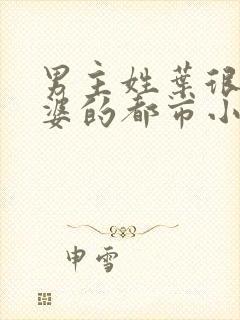 男主姓葉很
婆的都市小
申雪